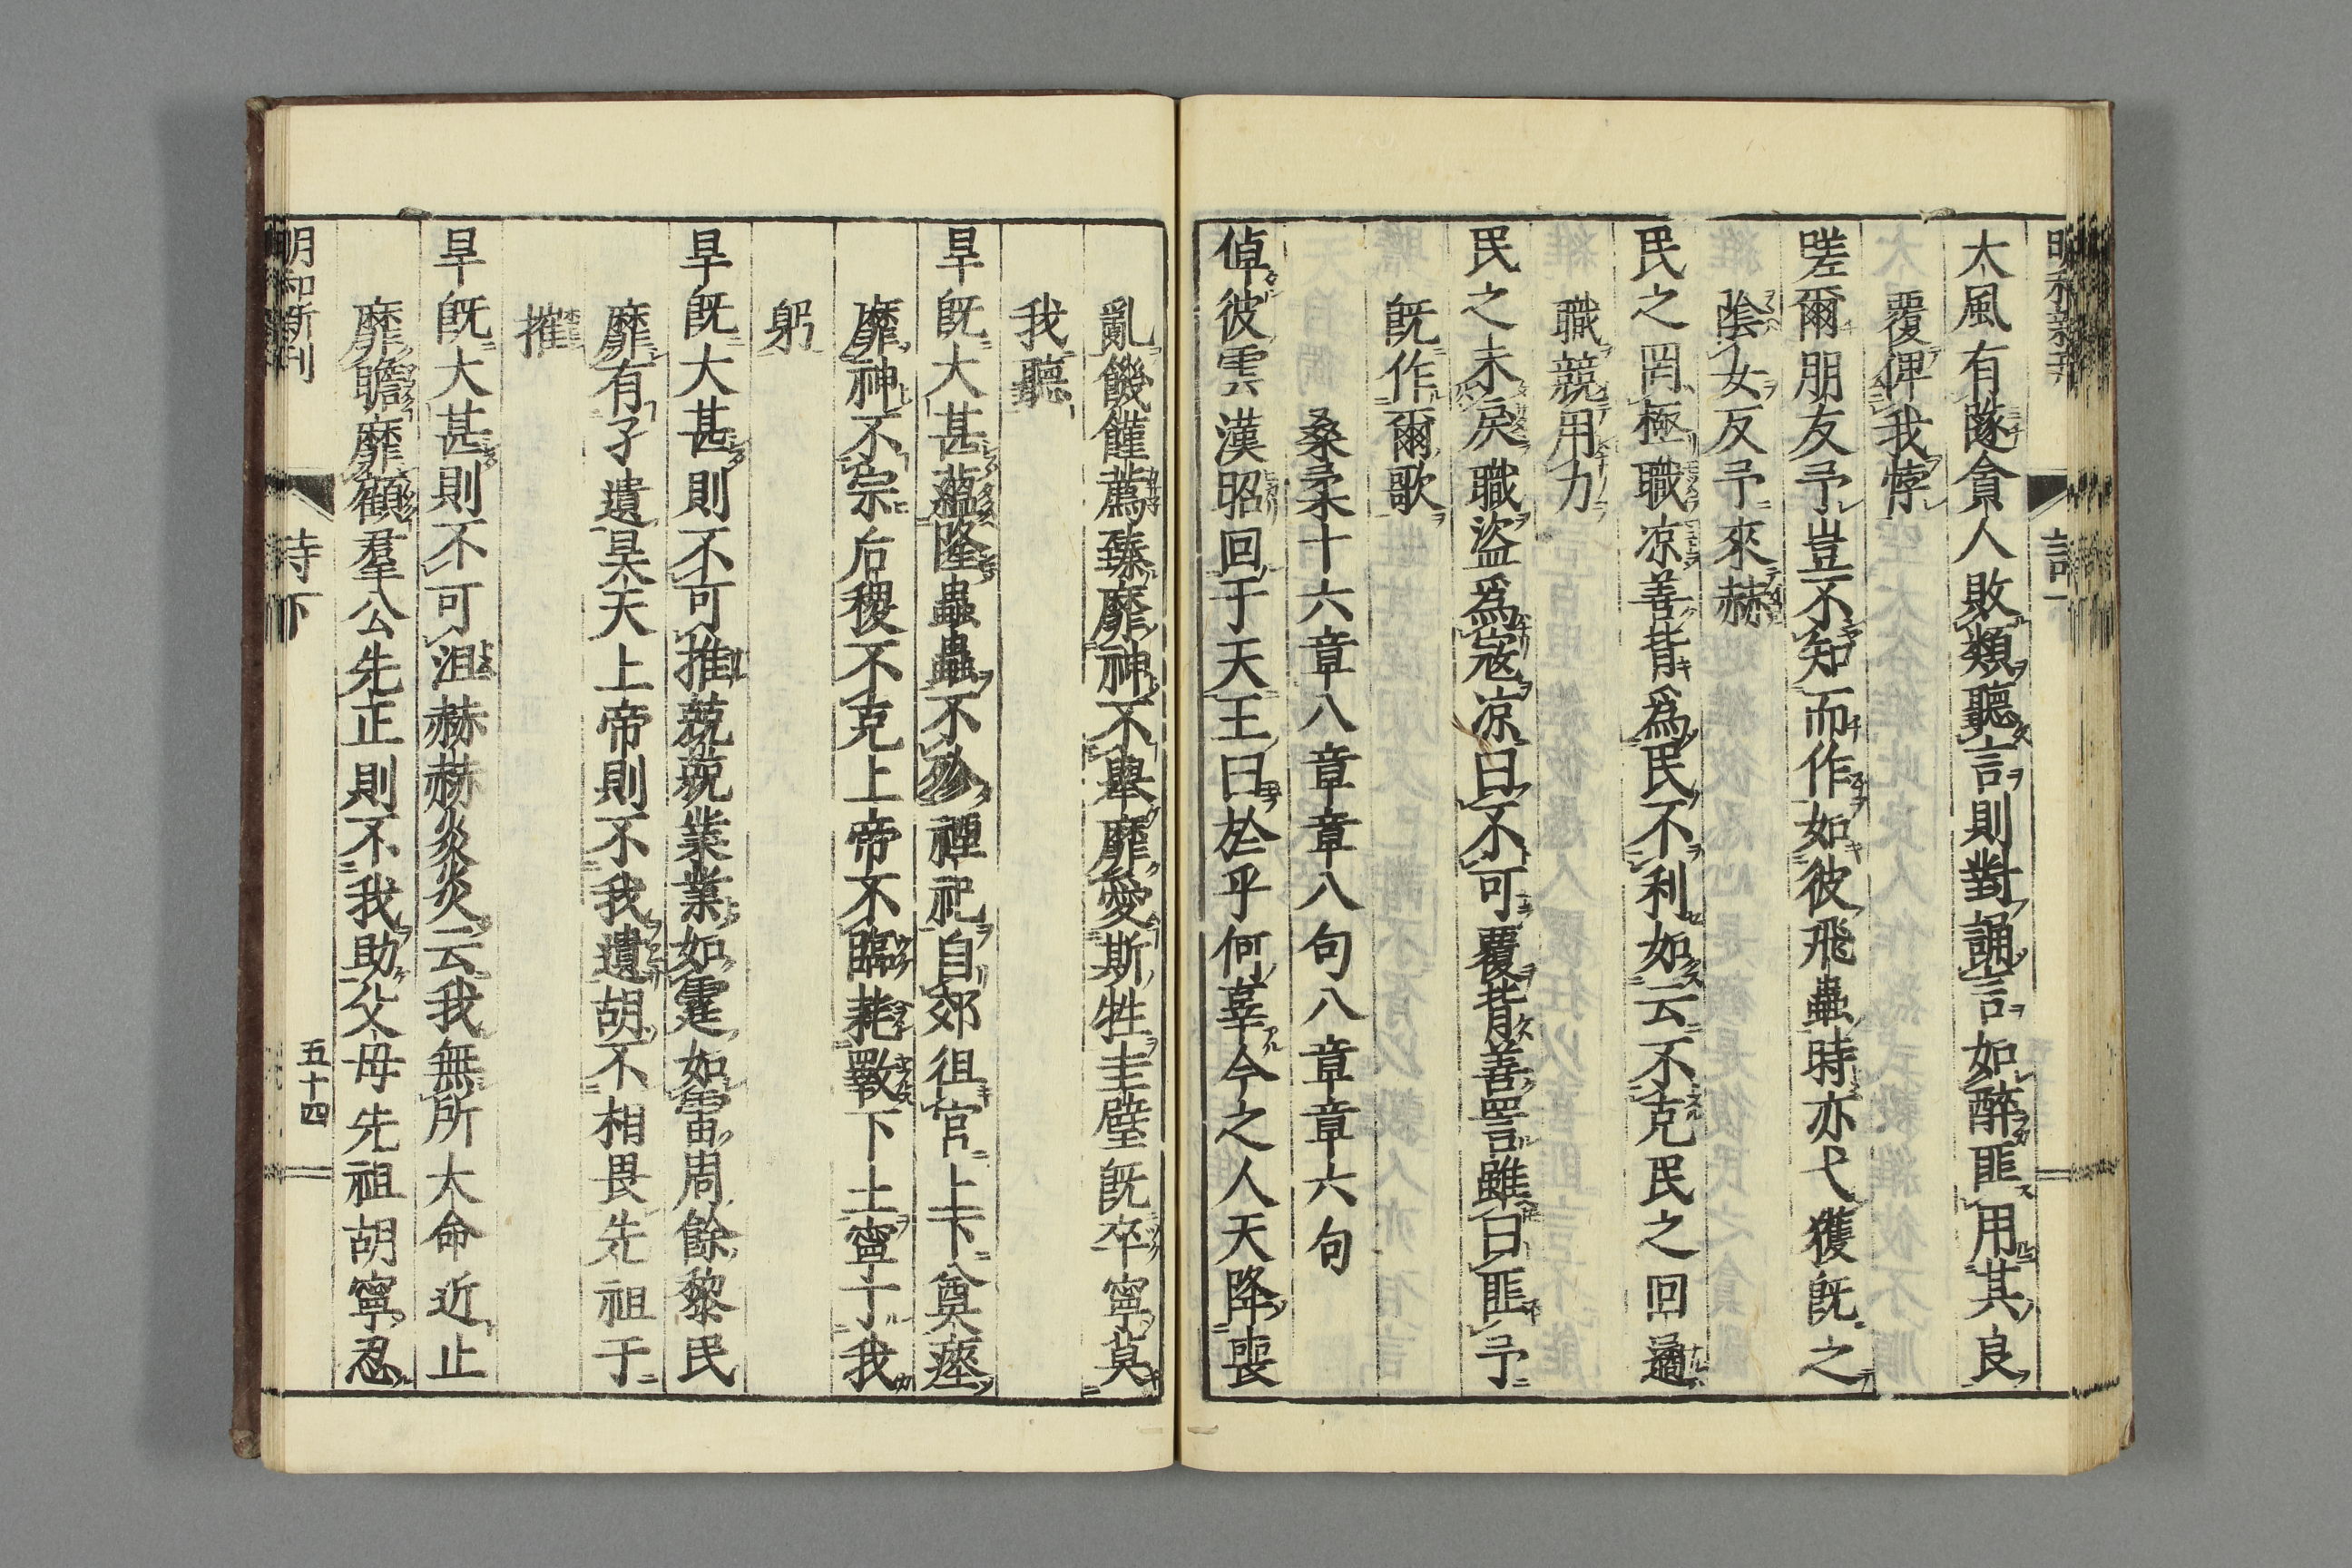 大風有隧貪人敗類聽言則對誦言如醉匪用其良
覆俾我悖
嗟爾朋友予豈不知而作如彼飛蟲時亦弋獲既之
陰女反予來赫
民之罔極職凉善背爲民不利如云不克民之回遹
職競用力
民之未戾職盜爲寇凉曰不可覆背善詈雖曰匪予
既作爾歌
桑柔十六章八章章八句八章章六句
倬彼雲漢昭回于天王曰於乎何辜今之人天降喪
亂饑饉薦臻靡神不舉靡愛斯牲圭璧既卒寧莫
我聽
旱既大甚蘊隆蟲蟲不殄禋祀自郊徂宮上下奠瘞
靡神不宗后稷不克上帝不臨耗斁下土寧丁我
躬
旱既大甚則不可推兢兢業業如霆如雷周餘黎民
靡有孑遺昊天上帝則不我遺胡不相畏先祖于
摧
旱既大甚則不可沮赫赫炎炎云我無所大命近止
靡瞻靡顧羣公先正則不我助父母先祖胡寧忍
明和新刊
詩下
五十四